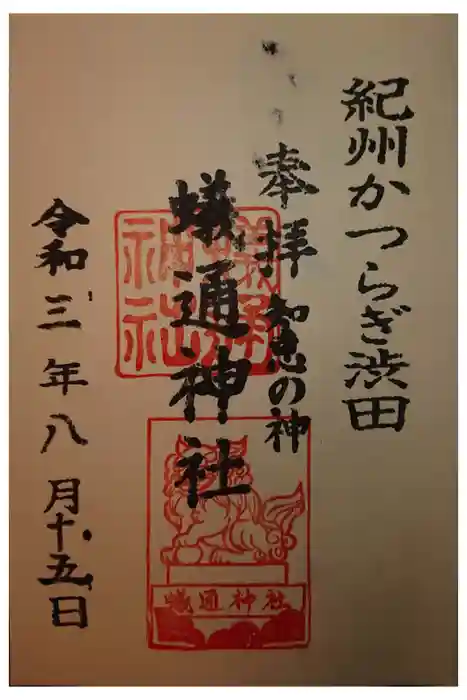 紀州かつらぎ渋田
奉拝 知恵の神
蟻通神社
令和三年八月十五日
蟻通神社
蟻通神社